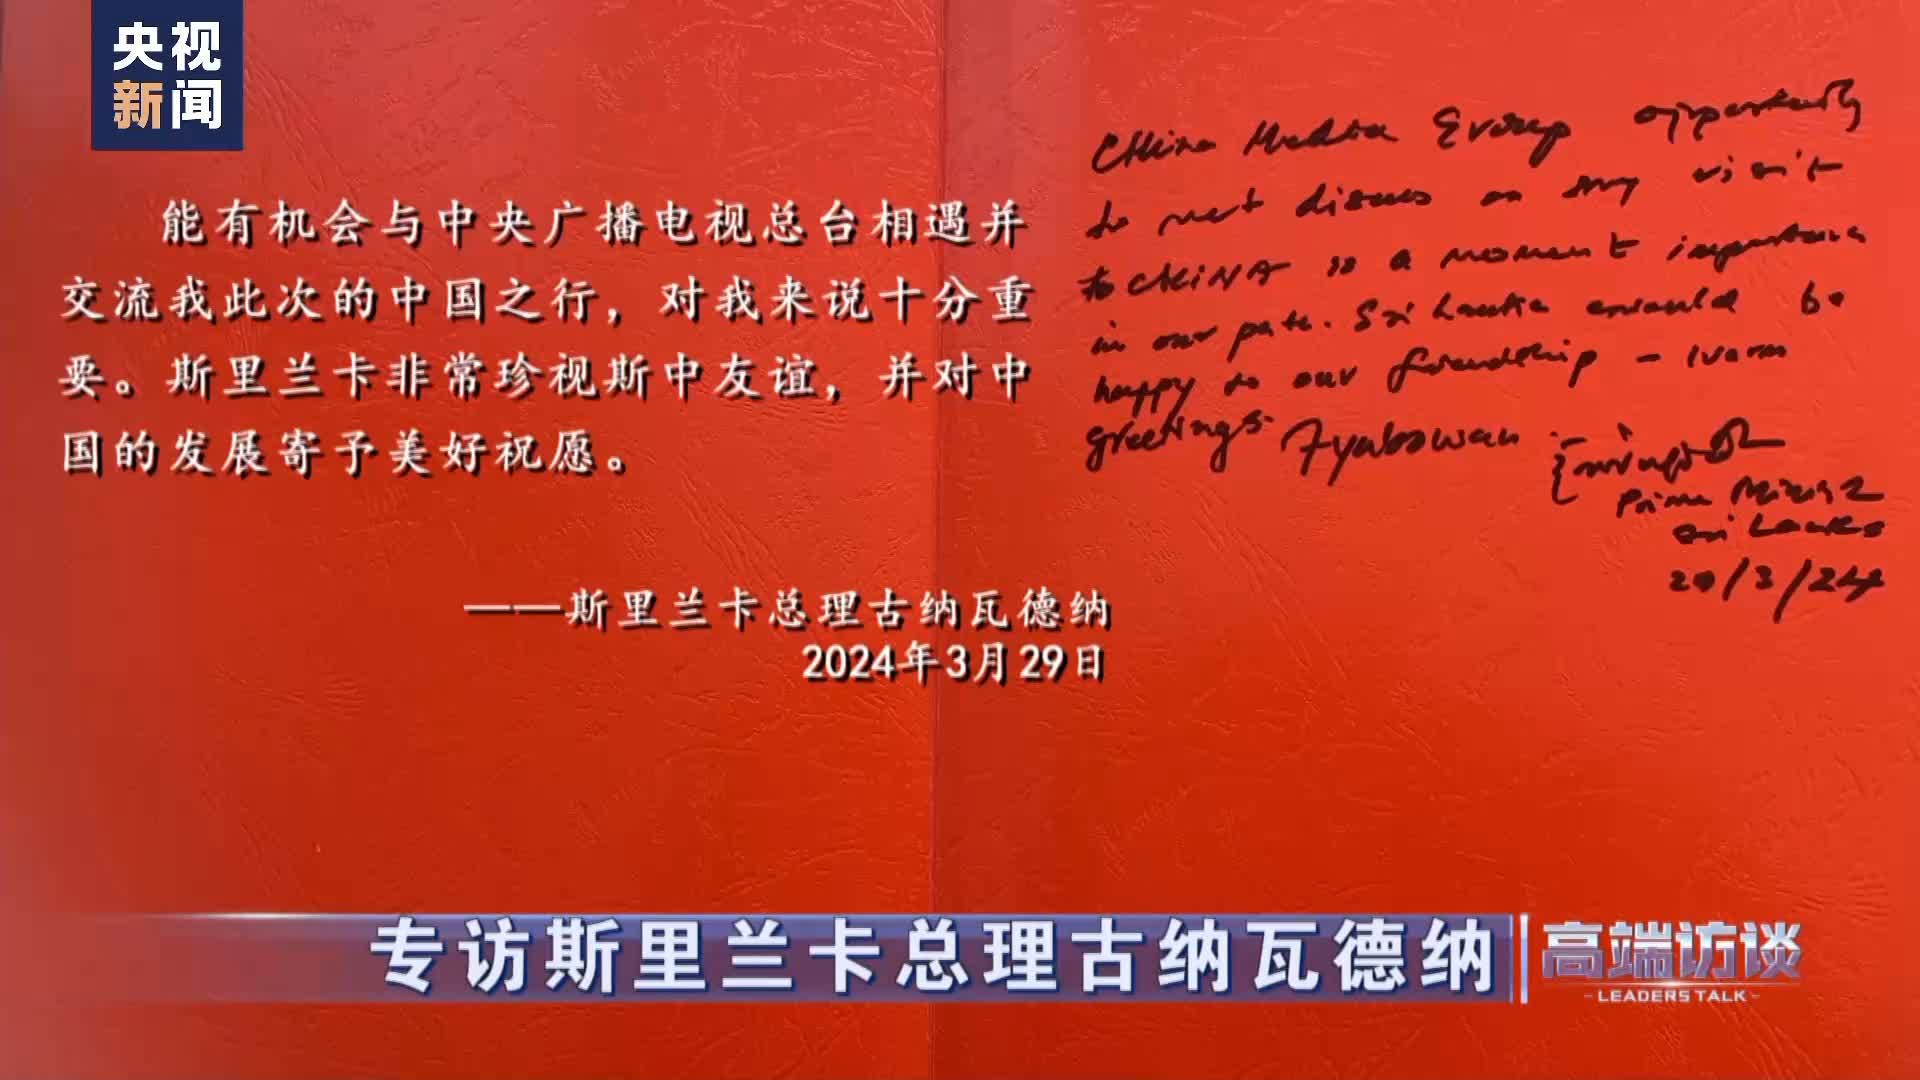 央视
新闻
能有机会与中央广播电视总台相遇并
交流我此次的中国之行，对我来说十分重
要。斯里兰卡非常珍视斯中友谊，并对中
国的发展寄予美好祝愿。
——斯里兰卡总理古纳瓦德纳
2024年3月29日
China Media Group opportunity
to meet discuss on my visit
to CHINA is a moment importance
in our path. Sri Lanka would be
happy to our friendship - warm
greetings. Ayubowan
Prime
Sri Lanka
/3/24
专访斯里兰卡总理古纳瓦德纳
高端访谈
-LEADERS TALK-